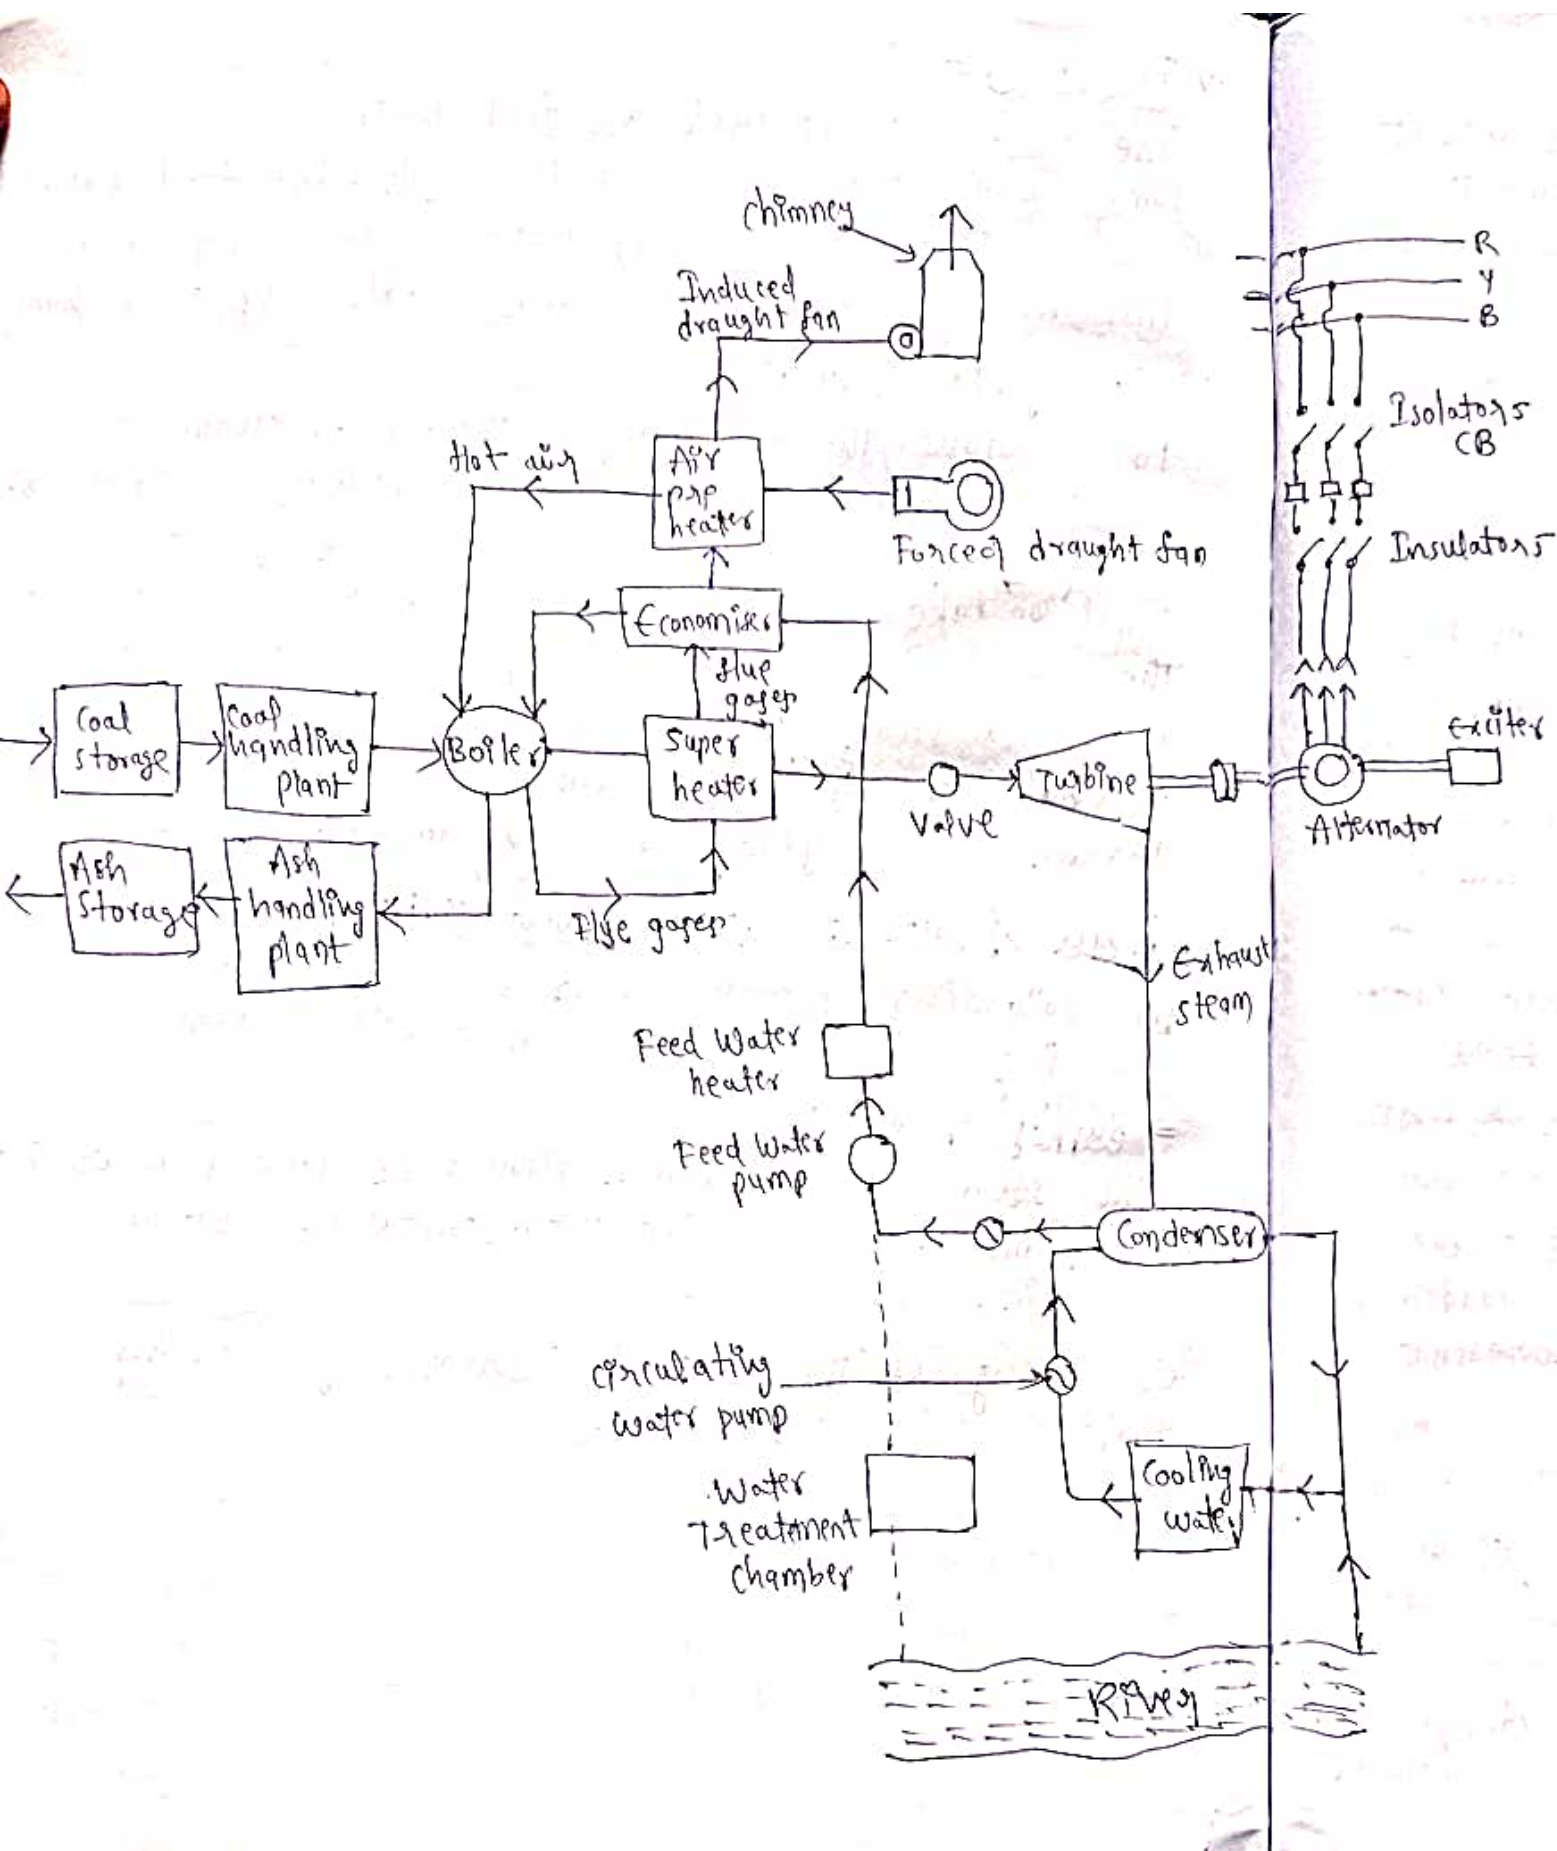 Chimney
Induced
draught fan
R
Y
B
Isolators
CB
Hot air
Air
pre
heater
Forced draught fan
Insulators
Economiser
flue
gases
Coal
storage
Coal
handling
plant
Boiler
Super
heater
Valve
Turbine
Exciter
Alternator
Ash
Storage
Ash
handling
plant
Flye gases
Exhaust
steam
Feed Water
heater
Feed Water
pump
Condenser
Circulating
water pump
Cooling
water
Water
Treatment
chamber
River